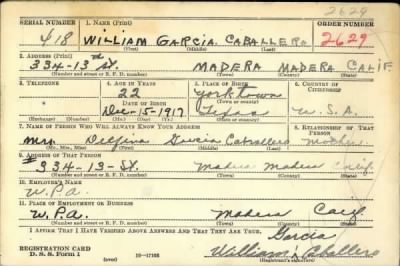 2629
SERIAL NUMBER 1. NAME (Print) ORDER NUMBER
418 WILLIAM GARCIA CABALLERO 2629
(First) (Middle) (Last)
2. ADDRESS (Print)
334-13th ST. MADERA MADERA CALIF
(Number and street or R. F. D. number) (Town) (County) (State)
3. TELEPHONE 4. AGE IN YEARS 5. PLACE OF BIRTH 6. COUNTRY OF CITIZENSHIP
22 Yorktown
DATE OF BIRTH (Town or county)
Dec-15-1917 Texas U.S.A.
(Exchange) (Number) (Mo.) (Day) (Yr.) (State or country)
7. NAME OF PERSON WHO WILL ALWAYS KNOW YOUR ADDRESS 8. RELATIONSHIP OF THAT PERSON
Mrs. Delfina Garcia Caballero Mother
(Mr., Mrs., Miss) (First) (Middle) (Last)
9. ADDRESS OF THAT PERSON
#334-13-St. Madera Madera Calif.
(Number and street or R. F. D. number) (Town) (County) (State)
10. EMPLOYER'S NAME
W.P.A.
11. PLACE OF EMPLOYMENT OR BUSINESS
W.P.A. Madera Calif.
(Number and street or R. F. D. number) (Town) (County) (State)
I AFFIRM THAT I HAVE VERIFIED ABOVE ANSWERS AND THAT THEY ARE TRUE.
REGISTRATION CARD Garcia
D. S. S. Form 1 (over) 16-17105 William Caballero
(Registrant's signature)